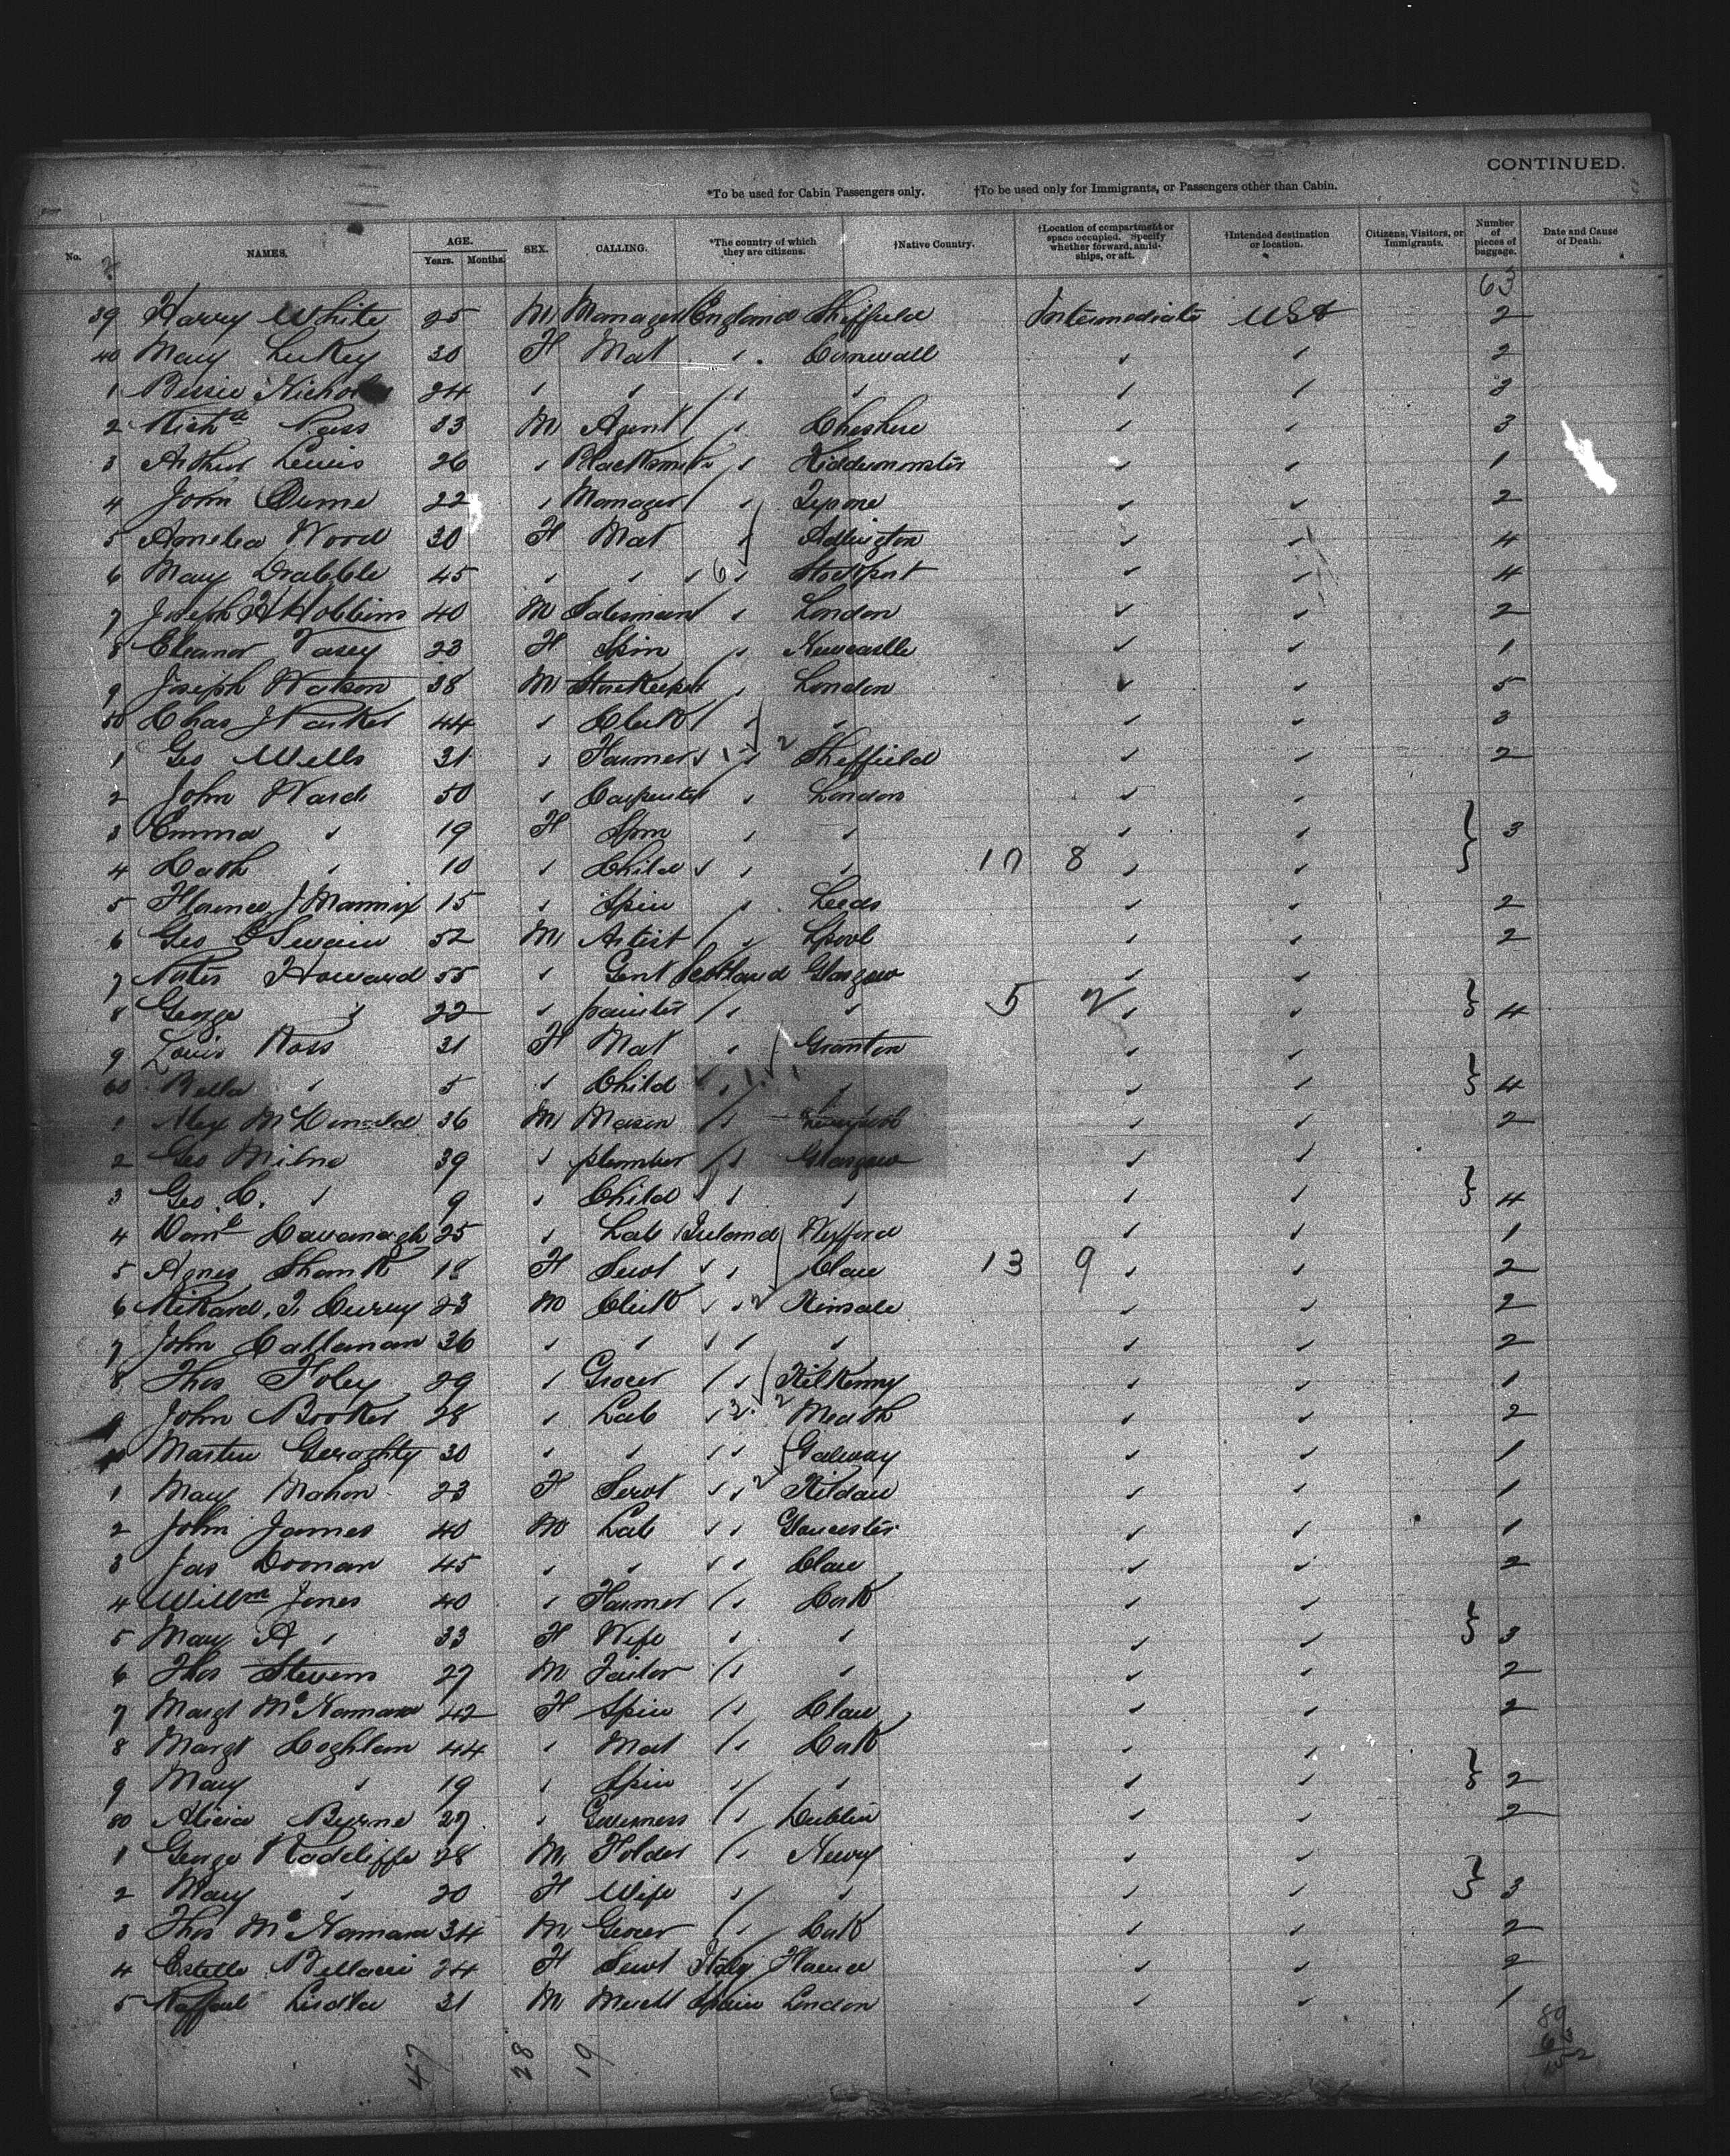 CONTINUED.
*To be used for Cabin Passengers only. †To be used only for Immigrants, or Passengers other than Cabin.
No. NAMES. AGE. Years. Months. SEX. CALLING. *The country of which they are citizens. †Native Country. †Location of compartment or space occupied. Specify whether forward, amidships, or aft. †Intended destination or location. Citizens, Visitors, or Immigrants. Number of pieces of baggage. Date and Cause of Death.
63
39 Harry White 25 M Manager England Sheffield Intermediate USA 2
40 Mary Lukey 30 F Mat " Cornwall " " 2
1 Bessie Nichols 24 " " " " " " 3
2 Richd Pass 33 M Agent " Cheshire " " 3
3 Arthur Lewis 26 " Blacksmith " Kidderminster " " 1
4 John 22 " Manager " " " 2
5 Amelia Wood 30 F Mat " Adlington " " 4
6 Mary Drabble 45 " " 6 " Stockport " " 4
7 Joseph H Hobbins 40 M Salesman " London " " 2
8 Eleanor Vasey 23 F Spin " Newcastle " " 1
9 Joseph Watson 38 M Storekeeper " London " " 5
50 Chas J Parker 44 " Clerk " " " " 3
1 Geo Wells 31 " Farmer 1 " 2 Sheffield " " 2
2 John Ward 50 " Carpenter " London " "
3 Emma " 19 F Spin " " " " } 3
4 Cath " 10 " Child " " 17 8 " "
5 Florence J Mannix 15 " Spin " Leeds " " 2
6 Geo C Swain 52 M Artist " Lpool " " 2
7 Howard 55 " Gent Scotland Glasgow " "
8 George " 22 " painter " " 5 2 " " } 4
9 Louis Ross 31 F Mat " Granton " "
60 Bella " 5 " Child " 1 " " " } 4
1 Alex McDonald 36 M Mason " " " 2
2 Geo Milne 39 " plumber " Glasgow " "
3 Geo C. " 9 " Child " " " " } 4
4 Danl Cavanagh 25 " Lab Ireland Wexford " " 1
5 Agnes Shank 18 F Servt " Clare 13 9 " " 2
6 Rikard. T. Curry 23 M Clerk " 2 Kinsale " " 2
7 John Callanan 36 " " " " " " 2
8 Thos Foley 29 " Grocer " Kilkenny " " 1
9 John Booker 28 " Lab " 2 Meath " " 2
70 Martin Geraghty 30 " " " Galway " " 1
1 Mary Mahon 23 F Servt " 2 Kildare " " 1
2 John James 40 M Lab " Gloucester " " 1
3 Jas Doonan 45 " " " Clare " " 2
4 Willm Jones 40 " Farmer " Cork " "
5 Mary A " 33 F Wife " " " " } 3
6 Thos Stevens 27 M Tailor " " " " 2
7 Margt McNamara 42 F Spin " Clare " " 2
8 Margt Coghlan 44 " Mat " Cork " "
9 Mary " 19 " Spin " " " " } 2
80 Alicia Byrne 27 " Governess " Dublin " " 2
1 George Radcliffe 28 M Folder " Newry " "
2 Mary " 20 F Wife " " " " } 3
3 Thos McNamara 34 M Grocer " Cork " " 2
4 Estelle 24 F Servt Italy Florence " " 2
5 31 M Mercht Spain London " " 1
47 28 19
89
63
152